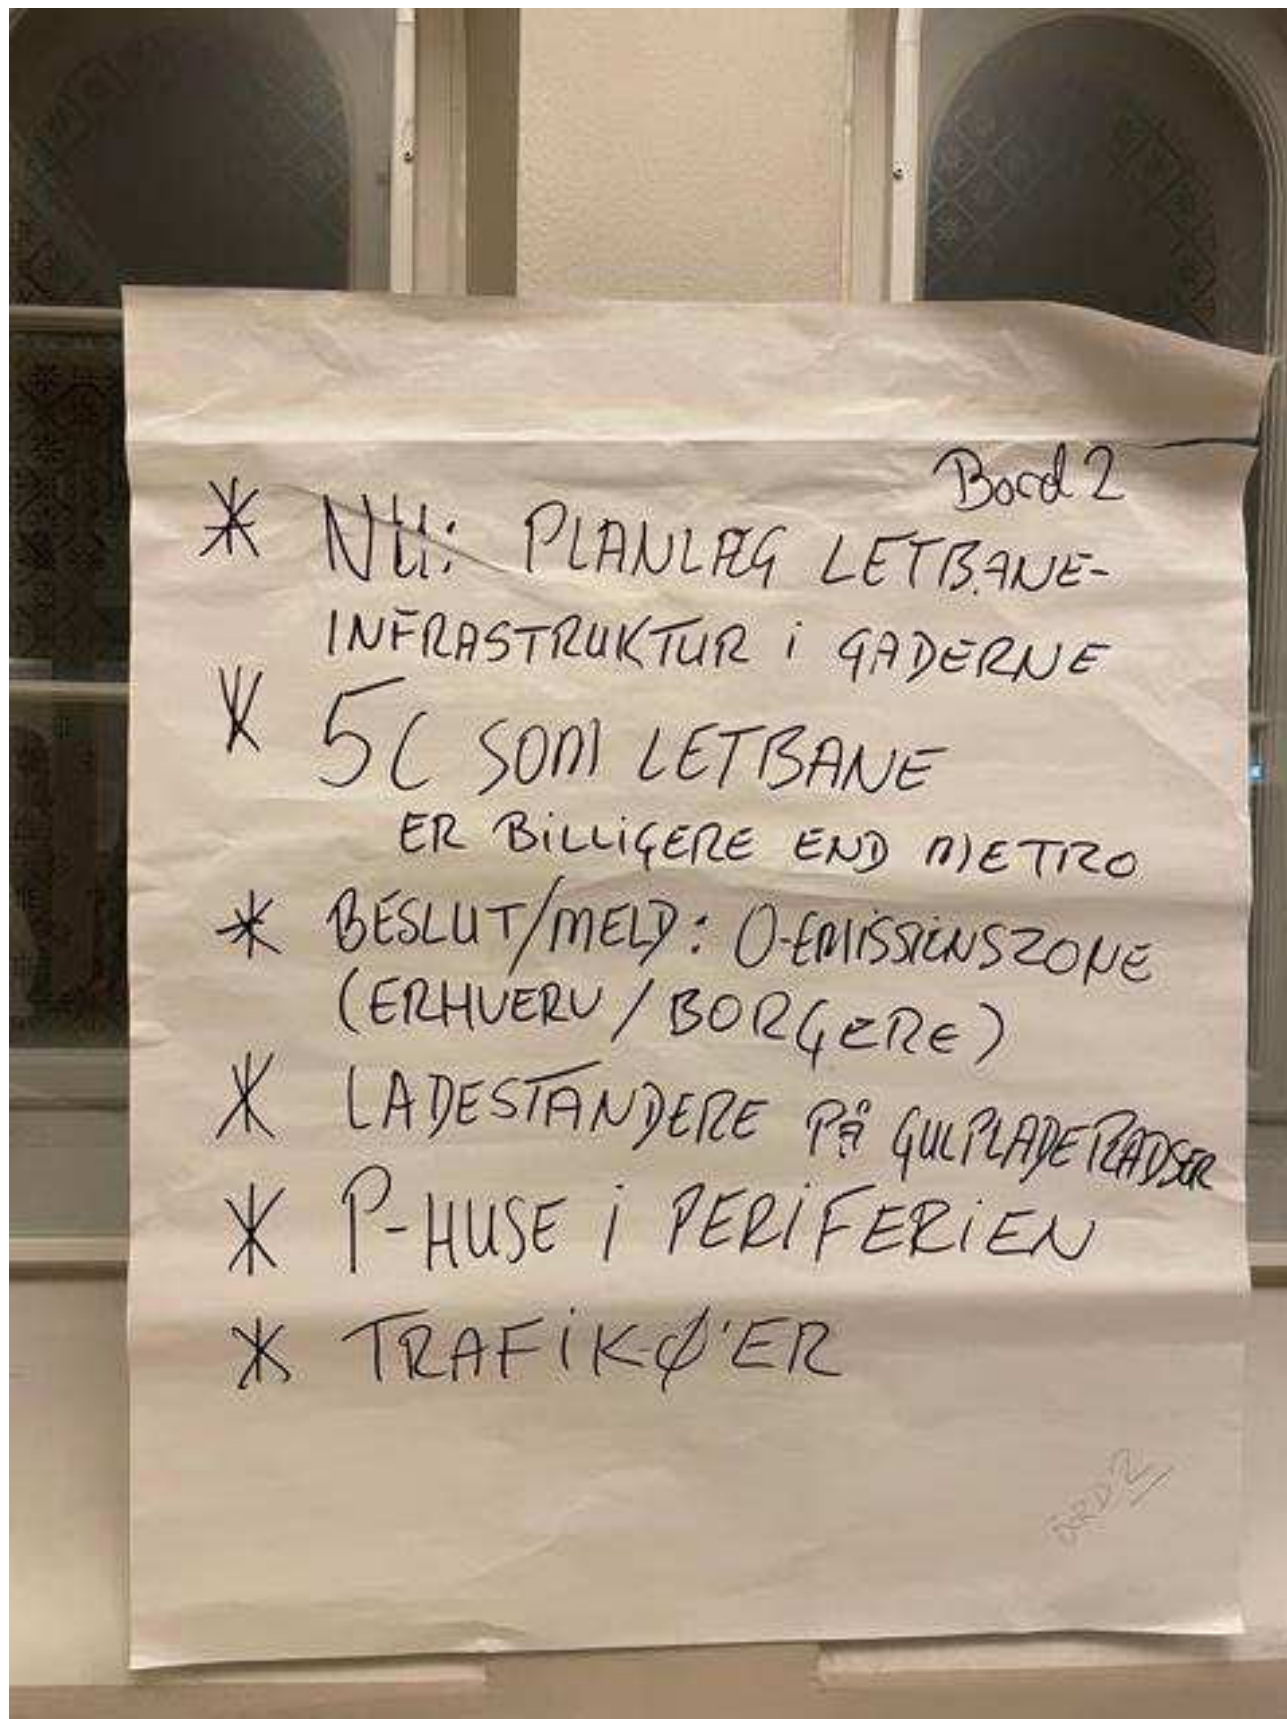 Bord 2
* NU: PLANLÆG LETBANE-
INFRASTRUKTUR i GADERNE
* 5C SOM LETBANE
ER BILLIGERE END METRO
* BESLUT/MELD: 0-EMISSIONSZONE
(ERHVERV / BORGERE)
* LADESTANDERE PÅ GULPLADEPLADSER
* P-HUSE i PERIFERIEN
* TRAFIK-Ø'ER
BORD 2